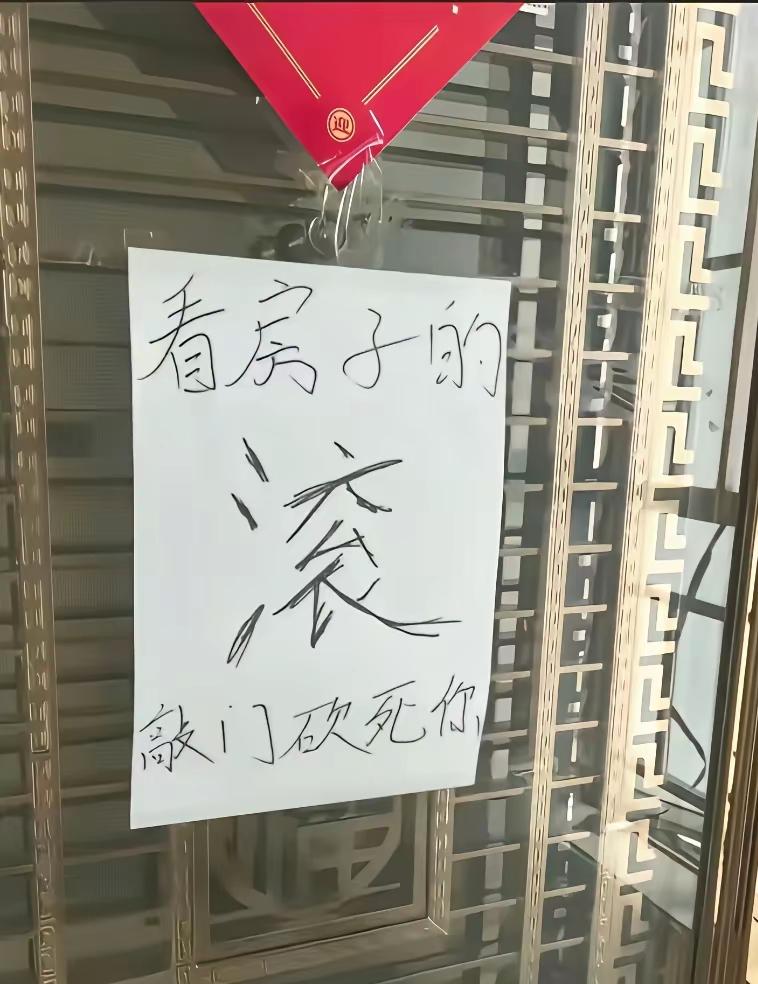 迎
看房子的
滚
敲门砍死你